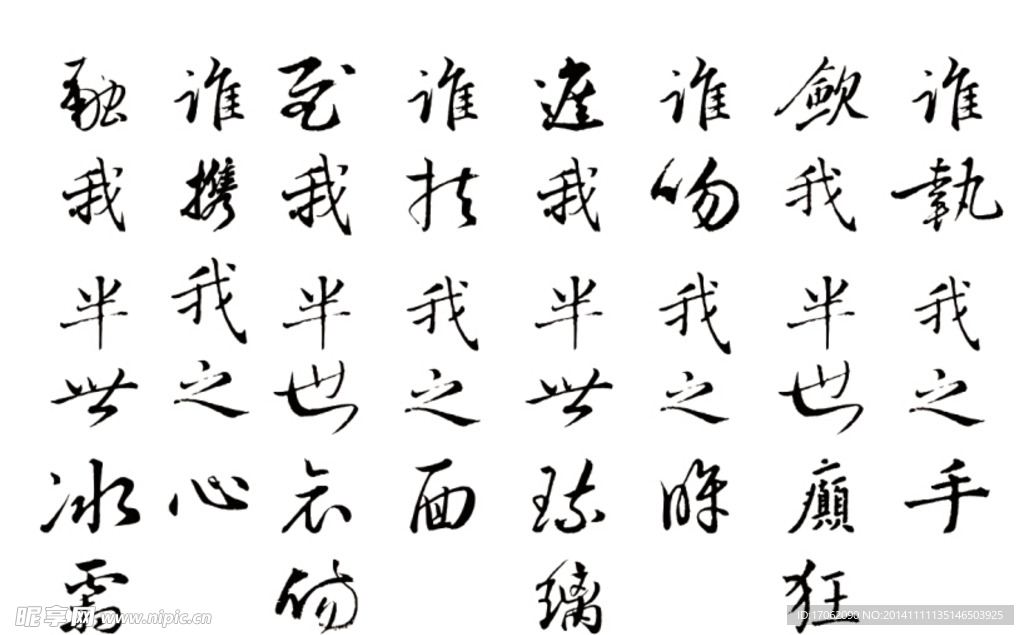 谁執我之手
歛我半世癲狂
谁吻我之眸
遮我半世琉璃
谁扶我之面
慰我半世哀傷
谁携我之心
融我半世冰霜
昵享网 www.nipic.cn
ID:17062090 NO:20141111135146503925